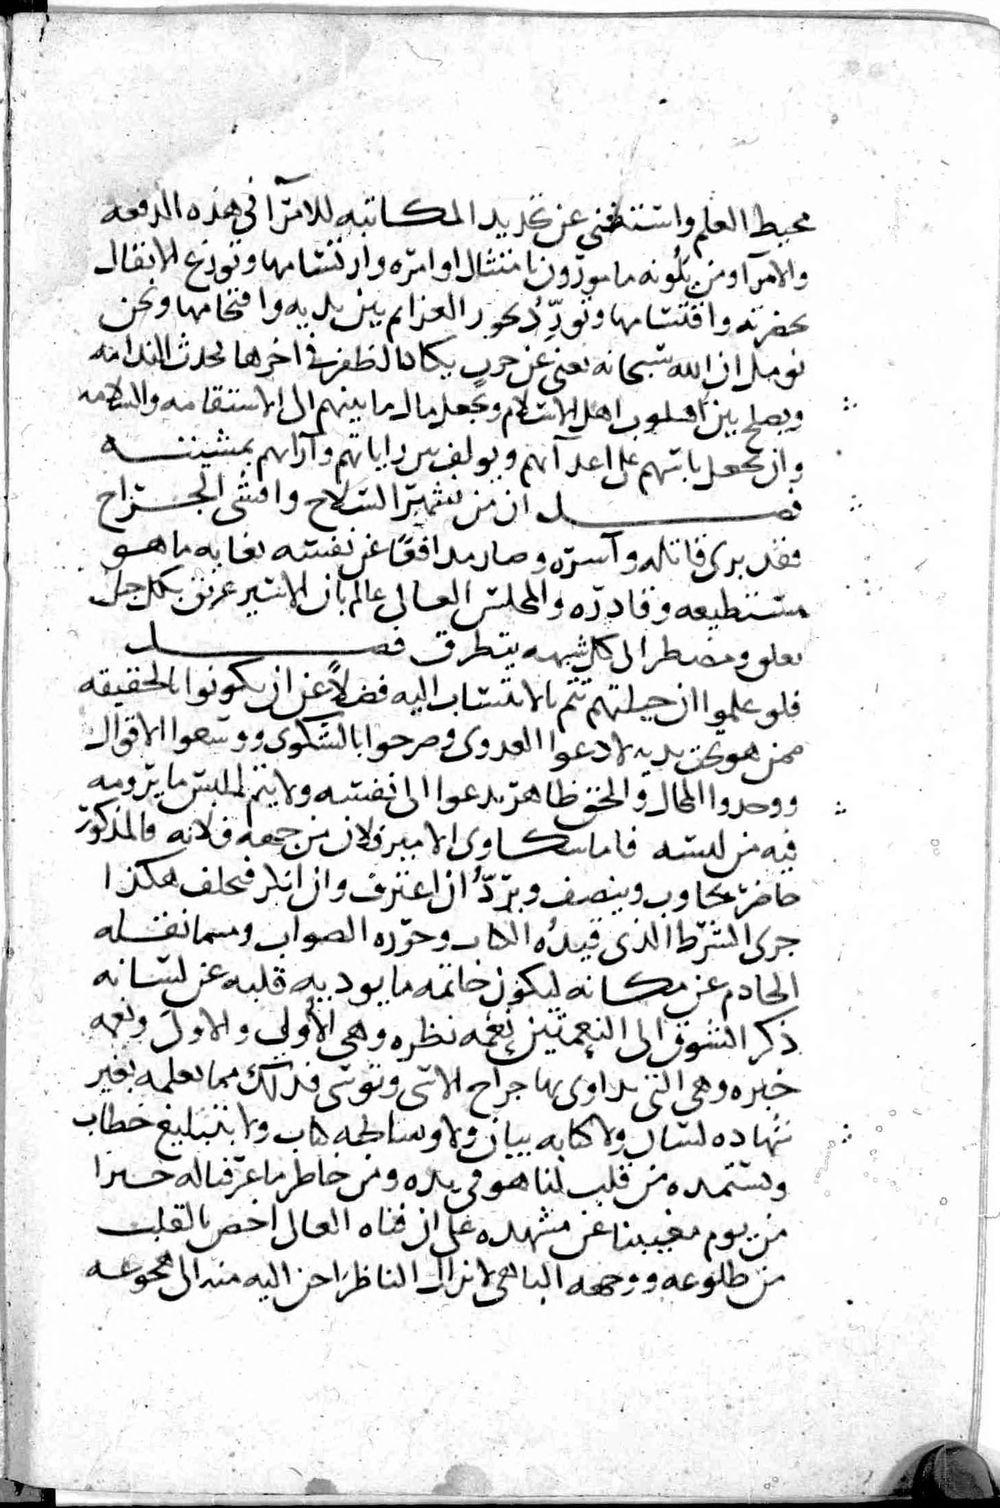 محيط العلم واستغنى عن تجديد المكاتبه للامرآ في هذه الدفعه
والامرآ ومن يلونه مامورون بامتثال اوامره وارتسامها وتوزع الانفال
بحضرته واقتسامها وتورد بحور العزايم بين يديه واقتحامها ونحن
نومل ان الله سبحانه يغنى عن حرب يكاد الظفر في اخرها يحدث الندامه
ويصلح بين قلوب اهل الاسلام ويجعل مال ما بينهم الى الاستقامه والسلامه
وان يجعل باسهم على اعدآئهم ويولف بين راياتهم وآرائهم بمشيئته
فصل ان من شهر السلاح وافشى الجراح
فقد برى قاتله وآسره وصار مدافعا عن نفسه بغايه ما هو
مستطيعه وقادره والمجلس العالى عالم بان الاسير غريق بكل حبل
يعلق ومضطر الى كل شبهه يتطرق فصل
فلو علموا ان حيلتهم تتم بالانتساب اليه فضلاً عن ان يكونوا بالحقيقه
ممن هو تحت يديه لادعوا العدوى وصرحوا بالشكوى ووسعوا الاقوال
ووجدوا المحال والحق ظاهر يدعوا الى نفسه ولا يتم لملبس ما يرومه
فيه من لبسه فاما شكاوى الامير فلان من جهه فلانه فالمذكور
حاضر يجاوب وينصف ويردُّ ان اعترف وان انكر فيحلف هكذا
جرى الشرط الذى قيده الكتاب وحرره الصواب ومما نقله
الخادم عن مكانه ليكون خاتمه ما يوديه قلبه عن لسانه
ذكر الشوق الى النعمتين نعمه نظره وهى الاولى والاول ونعمه
خبره وهى التى يداوى بها جراح الاسى وتوسى فذلك مما يعلمه بغير
شهاده لسان ولا كتابه بيان ولا وساطه كتاب ولا بتبليغ خطاب
ويستمده من قلب لنا هو فى يده ومن خاطر ما عرفنا له خبرا
من يوم مغيبنا عن مشهده على ان فناه العالى اخص بالقلب
من طلوعه ووجهه الباهى لا نزال الناظر احن اليه منه الى هجوعه